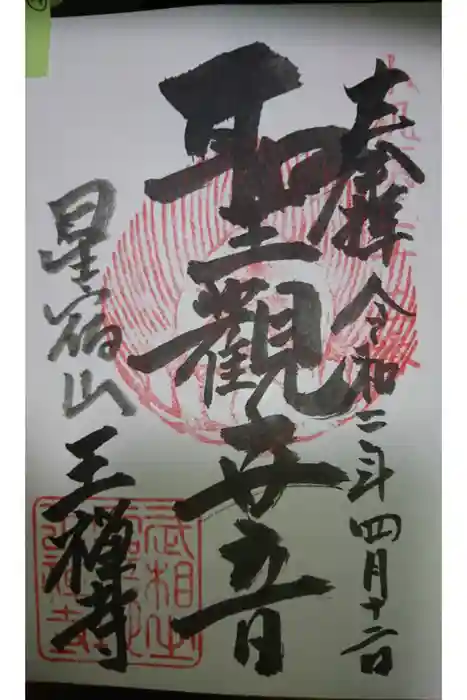 奉拝 令和二年四月十二日
聖觀世音
星宿山
王禅寺